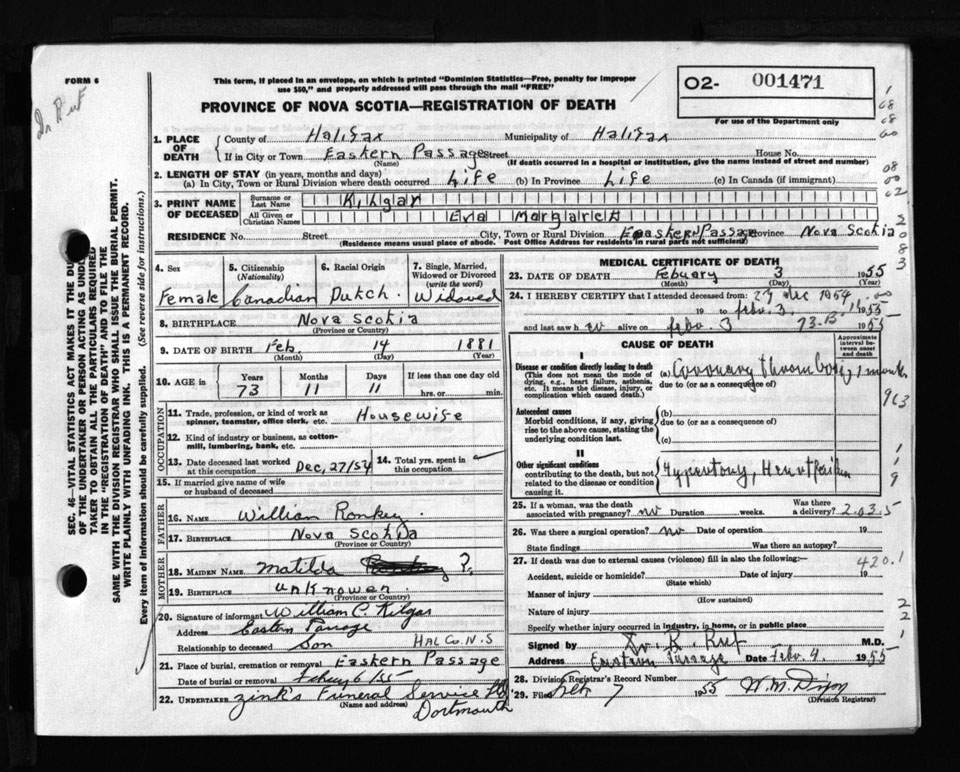 FORM 6
This form, if placed in an envelope, on which is printed "Dominion Statistics—Free, penalty for improper
use $50," and properly addressed will pass through the mail "FREE"
PROVINCE OF NOVA SCOTIA—REGISTRATION OF DEATH
O2- 001471
For use of the Department only
SEC. 46—VITAL STATISTICS ACT MAKES IT THE DUTY
OF THE UNDERTAKER OR PERSON ACTING AS UNDER-
TAKER TO OBTAIN ALL THE PARTICULARS REQUIRED
IN THE "REGISTRATION OF DEATH" AND TO FILE THE
SAME WITH THE DIVISION REGISTRAR WHO SHALL ISSUE THE BURIAL PERMIT.
WRITE PLAINLY WITH UNFADING INK. THIS IS A PERMANENT RECORD.
Every item of Information should be carefully supplied. (See reverse side for instructions.)
1. PLACE OF DEATH County of Halifax Municipality of Halifax
If in City or Town Eastern Passage Street House No.
(Name) (If death occurred in a hospital or institution, give the name instead of street and number)
2. LENGTH OF STAY (in years, months and days)
(a) In City, Town or Rural Division where death occurred Life (b) In Province Life (c) In Canada (if immigrant)
3. PRINT NAME OF DECEASED Surname or Last Name Kilgar
All Given or Christian Names Eva Margaret
RESIDENCE No. Street City, Town or Rural Division Eastern Passage Province Nova Scotia
(Residence means usual place of abode. Post Office Address for residents in rural parts not sufficient)
4. Sex Female
5. Citizenship (Nationality) Canadian
6. Racial Origin Dutch.
7. Single, Married, Widowed or Divorced (write the word) Widowed
8. BIRTHPLACE Nova Scotia
(Province or Country)
9. DATE OF BIRTH Feb. 14 1881
(Month) (Day) (Year)
10. AGE in Years 73 Months 11 Days 11 If less than one day old hrs. or min.
OCCUPATION
11. Trade, profession, or kind of work as spinner, teamster, office clerk, etc. Housewife
12. Kind of industry or business, as cotton-mill, lumbering, bank, etc.
13. Date deceased last worked at this occupation Dec, 27/54 14. Total yrs. spent in this occupation
15. If married give name of wife or husband of deceased
FATHER
16. NAME William Romkey.
17. BIRTHPLACE Nova Scotia
(Province or Country)
MOTHER
18. MAIDEN NAME Matilda ?.
19. BIRTHPLACE unknowen.
(Province or Country)
20. Signature of informant William C. Kilgar
Address Eastern Passage
Relationship to deceased Son HAL Co. N.S
21. Place of burial, cremation or removal Eastern Passage
Date of burial or removal 6/55
22. UNDERTAKER Zink's Funeral Service Ltd
(Name and address) Dartmouth
MEDICAL CERTIFICATE OF DEATH
23. DATE OF DEATH Febuary 3 1955
(Month) (Day)
24. I HEREBY CERTIFY that I attended deceased from: 27 Dec 1954
19 to febr. 3, 1955
and last saw h er alive on febr. 3 1955
CAUSE OF DEATH
Approximate interval between onset and death
I
Disease or condition directly leading to death
(This does not mean the mode of dying, e.g., heart failure, asthenia, etc. It means the disease, injury, or complication which caused death.)
(a) Coronary thrombosis, 1 month
due to (or as a consequence of)
Antecedent causes
Morbid conditions, if any, giving rise to the above cause, stating the underlying condition last.
(b)
due to (or as a consequence of)
(c)
II
Other significant conditions
contributing to the death, but not related to the disease or condition causing it.
25. If a woman, was the death associated with pregnancy? no Duration weeks. Was there a delivery?
26. Was there a surgical operation? no Date of operation 19
State findings Was there an autopsy?
27. If death was due to external causes (violence) fill in also the following:— 420.1
Accident, suicide or homicide? Date of injury 19
(State which)
Manner of injury
(How sustained)
Nature of injury
Specify whether injury occurred in industry, in home, or in public place
Signed by M.D.
Address Eastern Passage Date Febr. 4. 1955
28. Division Registrar's Record Number
29. Filed Feb 7 1955 W. M. Dixon
(Division Registrar)